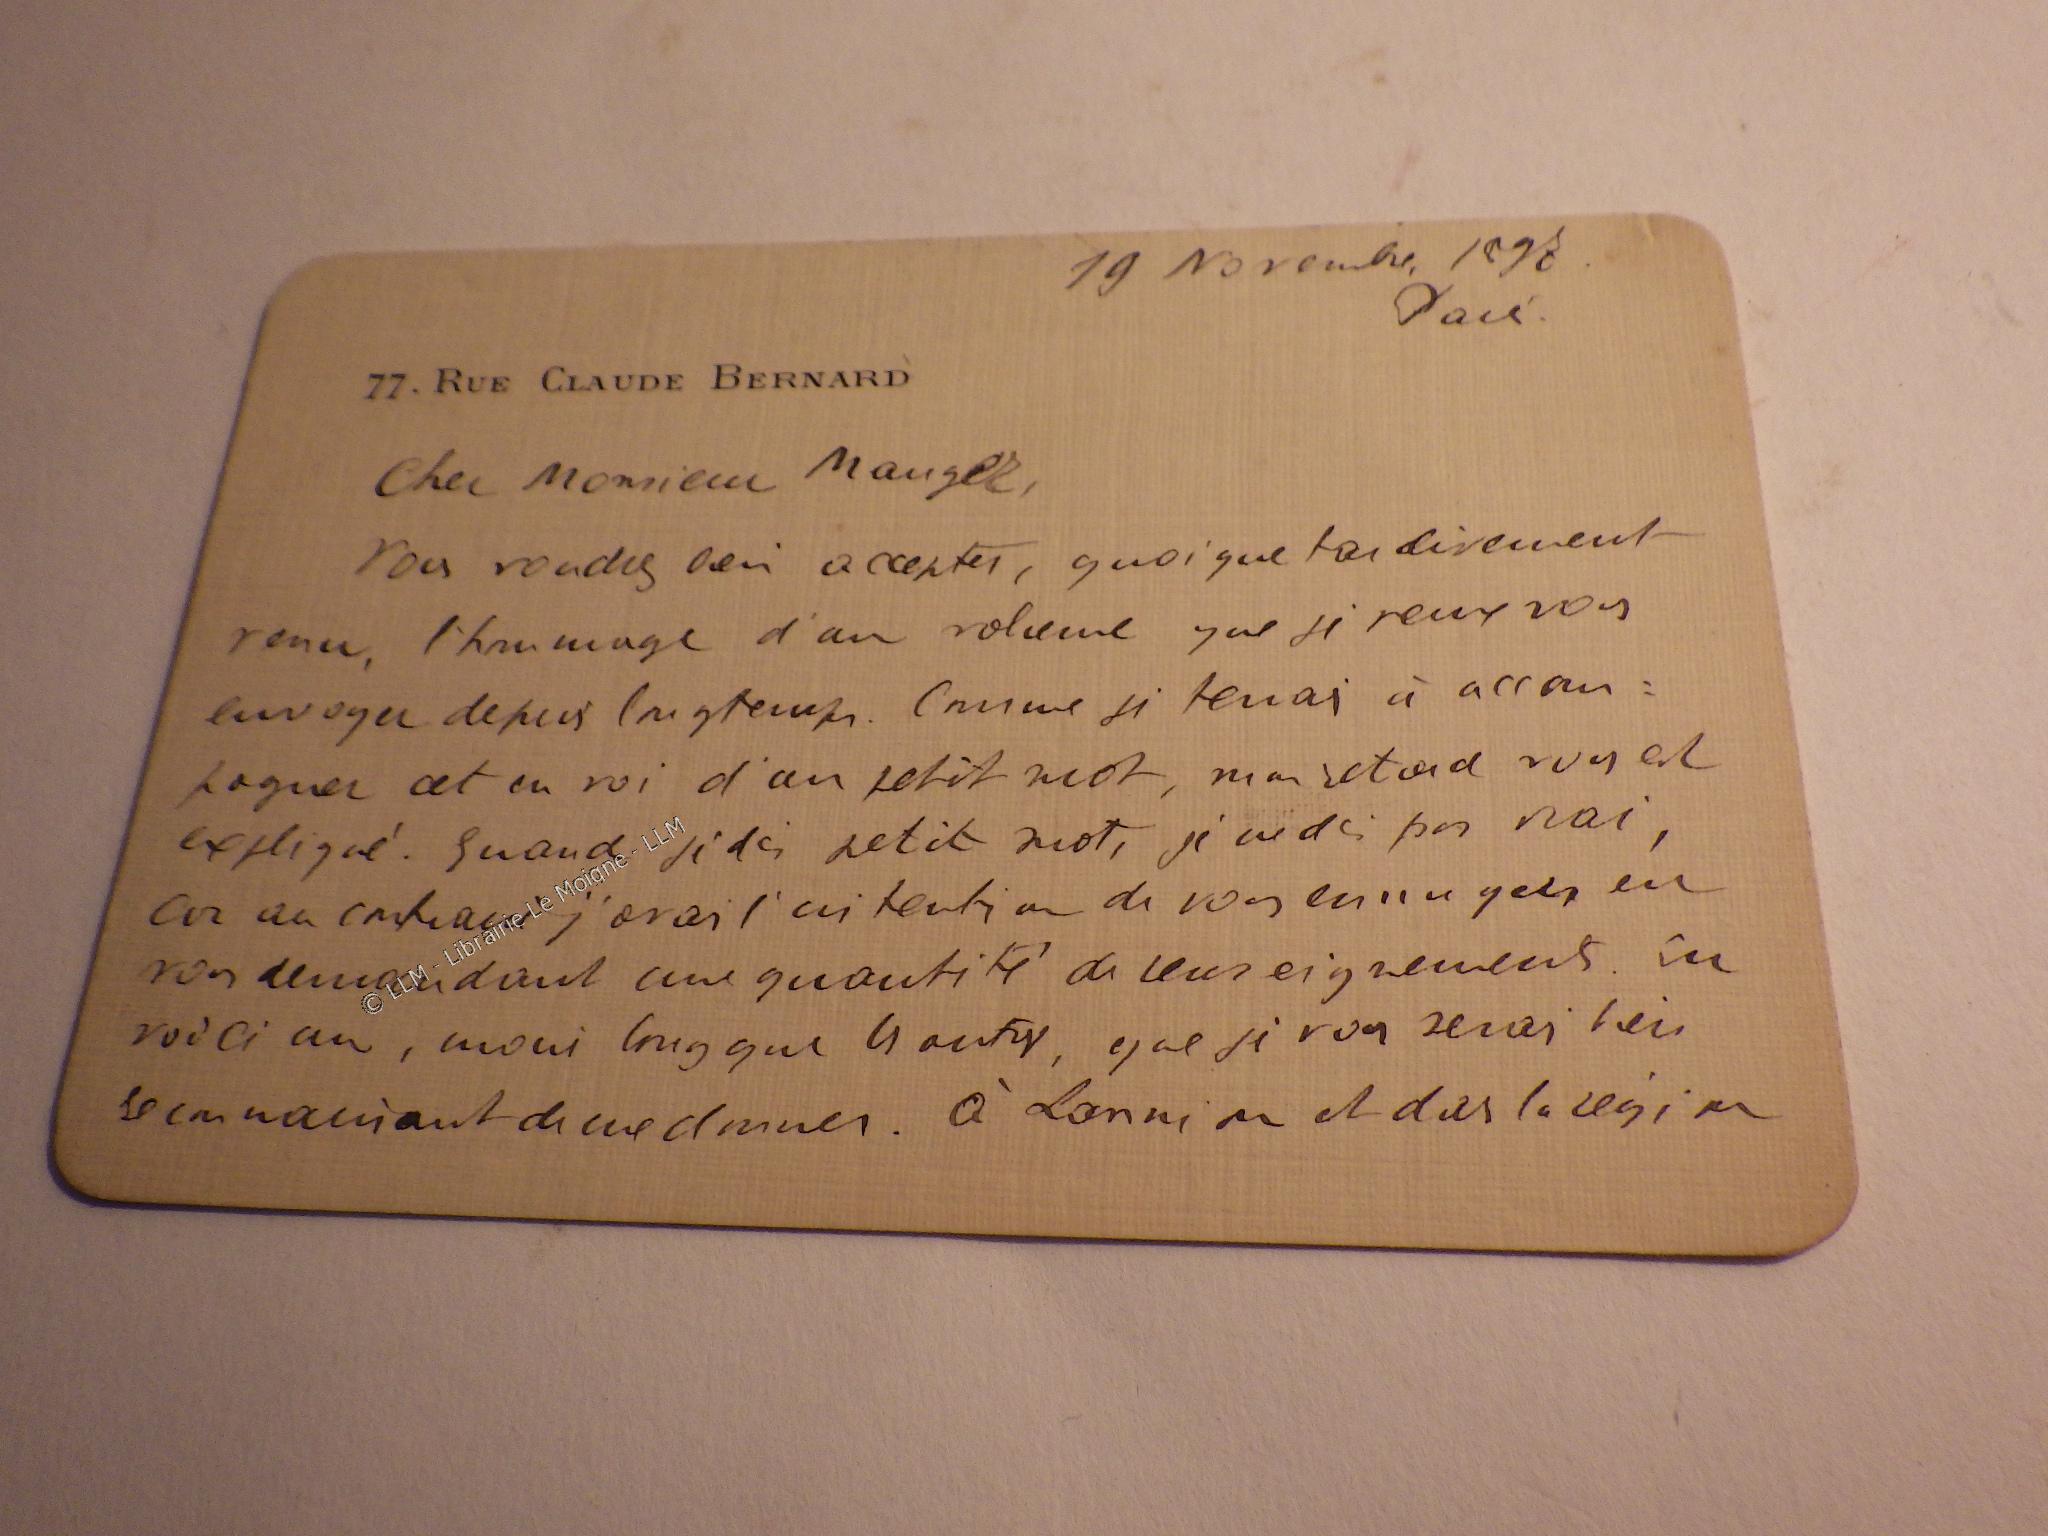 19 Novembre, 1897.
Paris.
77. RUE CLAUDE BERNARD
Cher Monsieur
Vous voudrez bien accepter, quoique tardivement
venu, l'hommage d'un volume que je veux vous
envoyer depuis longtemps. Comme je tenais à accom=
pagner cet envoi d'un petit mot, mon retard vous est
expliqué. Quand je dis petit mot, je ne dis pas vrai,
car au contraire j'avais l'intention de vous ennuyer, en
vous demandant une quantité de renseignements. En
voici un, moins long que les autres, que je vous serais bien
reconnaissant de me donner. À Lannion et dans la région
© LLM - Librairie Le Moigne - LLM